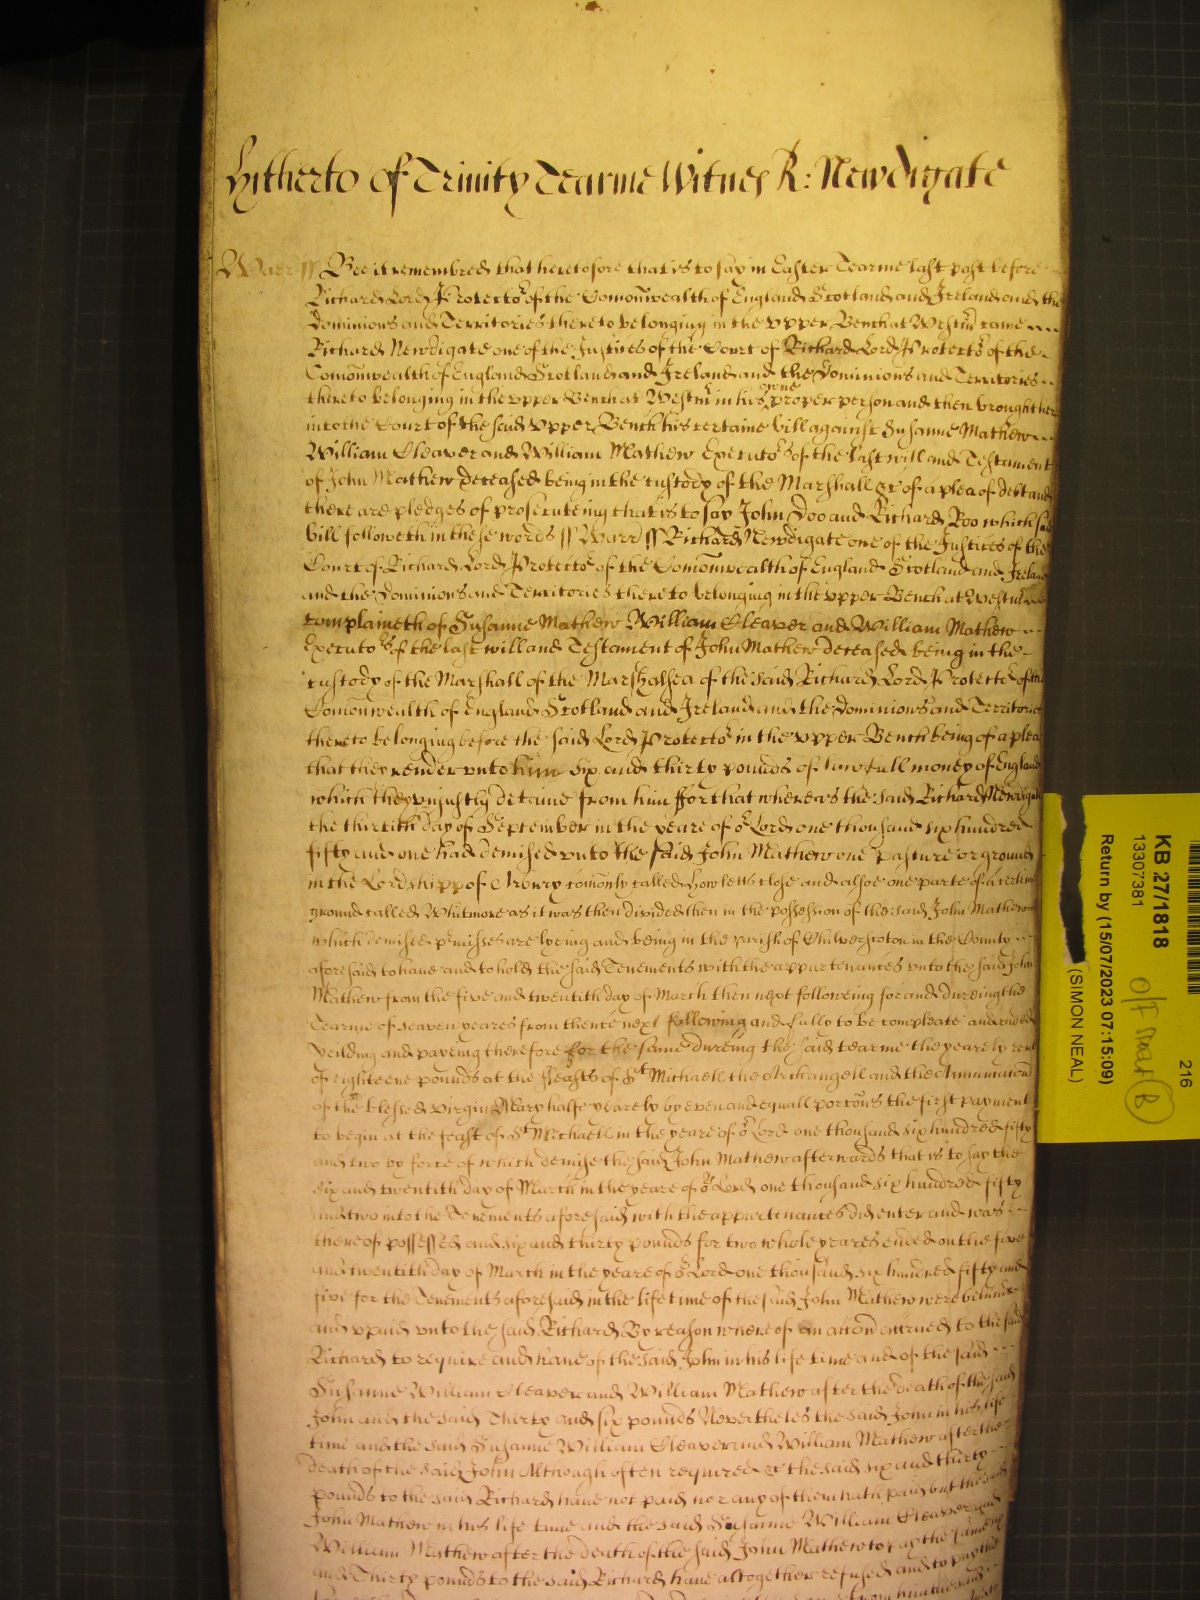 Hitherto of Trinity Tearme Witnes R: Newdigate
Warr ss Bee it remembred that heretofore that is to say in Easter Tearme last past before
Richard Lord Protector of the Comonwealth of England Scotland and Ireland and the
Dominions and Territories thereto belonging in the vpper Bench at Westmr came
Richard Newdigate one of the Justices of the Court of Richard Lord Protector of the
Comonwealth of England Scotland and Ireland and the Dominions and Territories
thereto belonging in the vpper Bench at Westmr in his owne proper person and then brought here
into the Court of the said vpper Bench his certaine bill against Susanne Mathew
William Cleaver and William Mathew Executors of the last will and Testament
of John Mathew deceased being in the custody of the Marshall &c of a plea of debt and
there are pledges of prosecuteing that is to say John Doo and Richard Roo which said
bill followeth in these words ss Warr ss Richard Newdigate one of the Justices of the
Court of Richard Lord Protector of the Comonwealth of England Scotland and Ireland
and the Dominions and Territories thereto belonging in the vpper Bench at Westmr
complaineth of Susanne Mathew William Cleaver and William Mathew
Executors of the last will and Testament of John Mathew deceased being in the
custody of the Marshall of the Marshalsea of the said Richard Lord Protector of the
Comonwealth of England Scotland and Ireland and the Dominions and Territories
thereto belonging before the said Lord Protector in the vpper Bench being of a plea
that they render vnto him six and thirty pounds of lawfull money of England
which they vniustly detaine from him ffor that whereas the said Richard Newdigate
the thirtith day of September in the yeare of or Lord one thousand six hundred
fifty and one had demised vnto the said John Mathew one pasture or ground
in the Lordshipp of Arbury comonly called Howletts close and alsoe one parte of a certeine
ground called Whitmore as it was then divided then in the possession of the said John Mathew
which demised pr misses are lyeing and being in the parish of Chilverscoton in the County
aforesaid to haue and to hold the said Tenements with the appurtenances vnto the said John
Mathew from the five and twentith day of March then next following for and dureing the
Tearme of seaven yeares from thence next following and fully to be compleate and ended
yeilding and payeing therefore for the same dureing the said tearme the yearely rent
of eighteene pounds at the ffeasts of St Michaell the Archangell and the Annunciacon
of the blessed virgin Mary halfe yearely by even and equall porcons the first payment
to begin at the feast of St Michaell in the yeare of or Lord one thousand six hundred fifty
and two by force of which demise the said John Mathew afterwards that is to say the
six and twentith day of March in the yeare of or Lord one thousand six hundred fifty
and two into the Tenements aforesaid with the appurtenances did enter and was
thereof possessed and six and thirty pounds for two whole yeares ended on the five
and twentith day of March in the yeare of or Lord one thousand six hundred fifty and
five for the Tenements aforesaid in the life time of the said John Mathew were behinde
and vpaid vnto the said Richard By reason whereof an accon accrued to the said
Richard to require and haue of the said John in his life time and of the said
Susanne William Cleaver and William Mathew after the death of the said
John and the said Thirty and six pounds Neverthelės the said John in his life
time and the said Susanne William Cleaver and William Mathew after the
death of the said John Although often required &c the said six and thirty
pounds to the said Richard haue not paid nor any of them hath paid but the said
John Mathew in his life time and the said Susanne William Cleaver and
William Mathew after the death of the said John Mathew to pay the same six
and Thirty pounds to the said Richard haue altogether refused and to pay the
KB 27/1818
13307381
Return by (15/07/2023 07:15:09)
(SIMON NEAL)
216